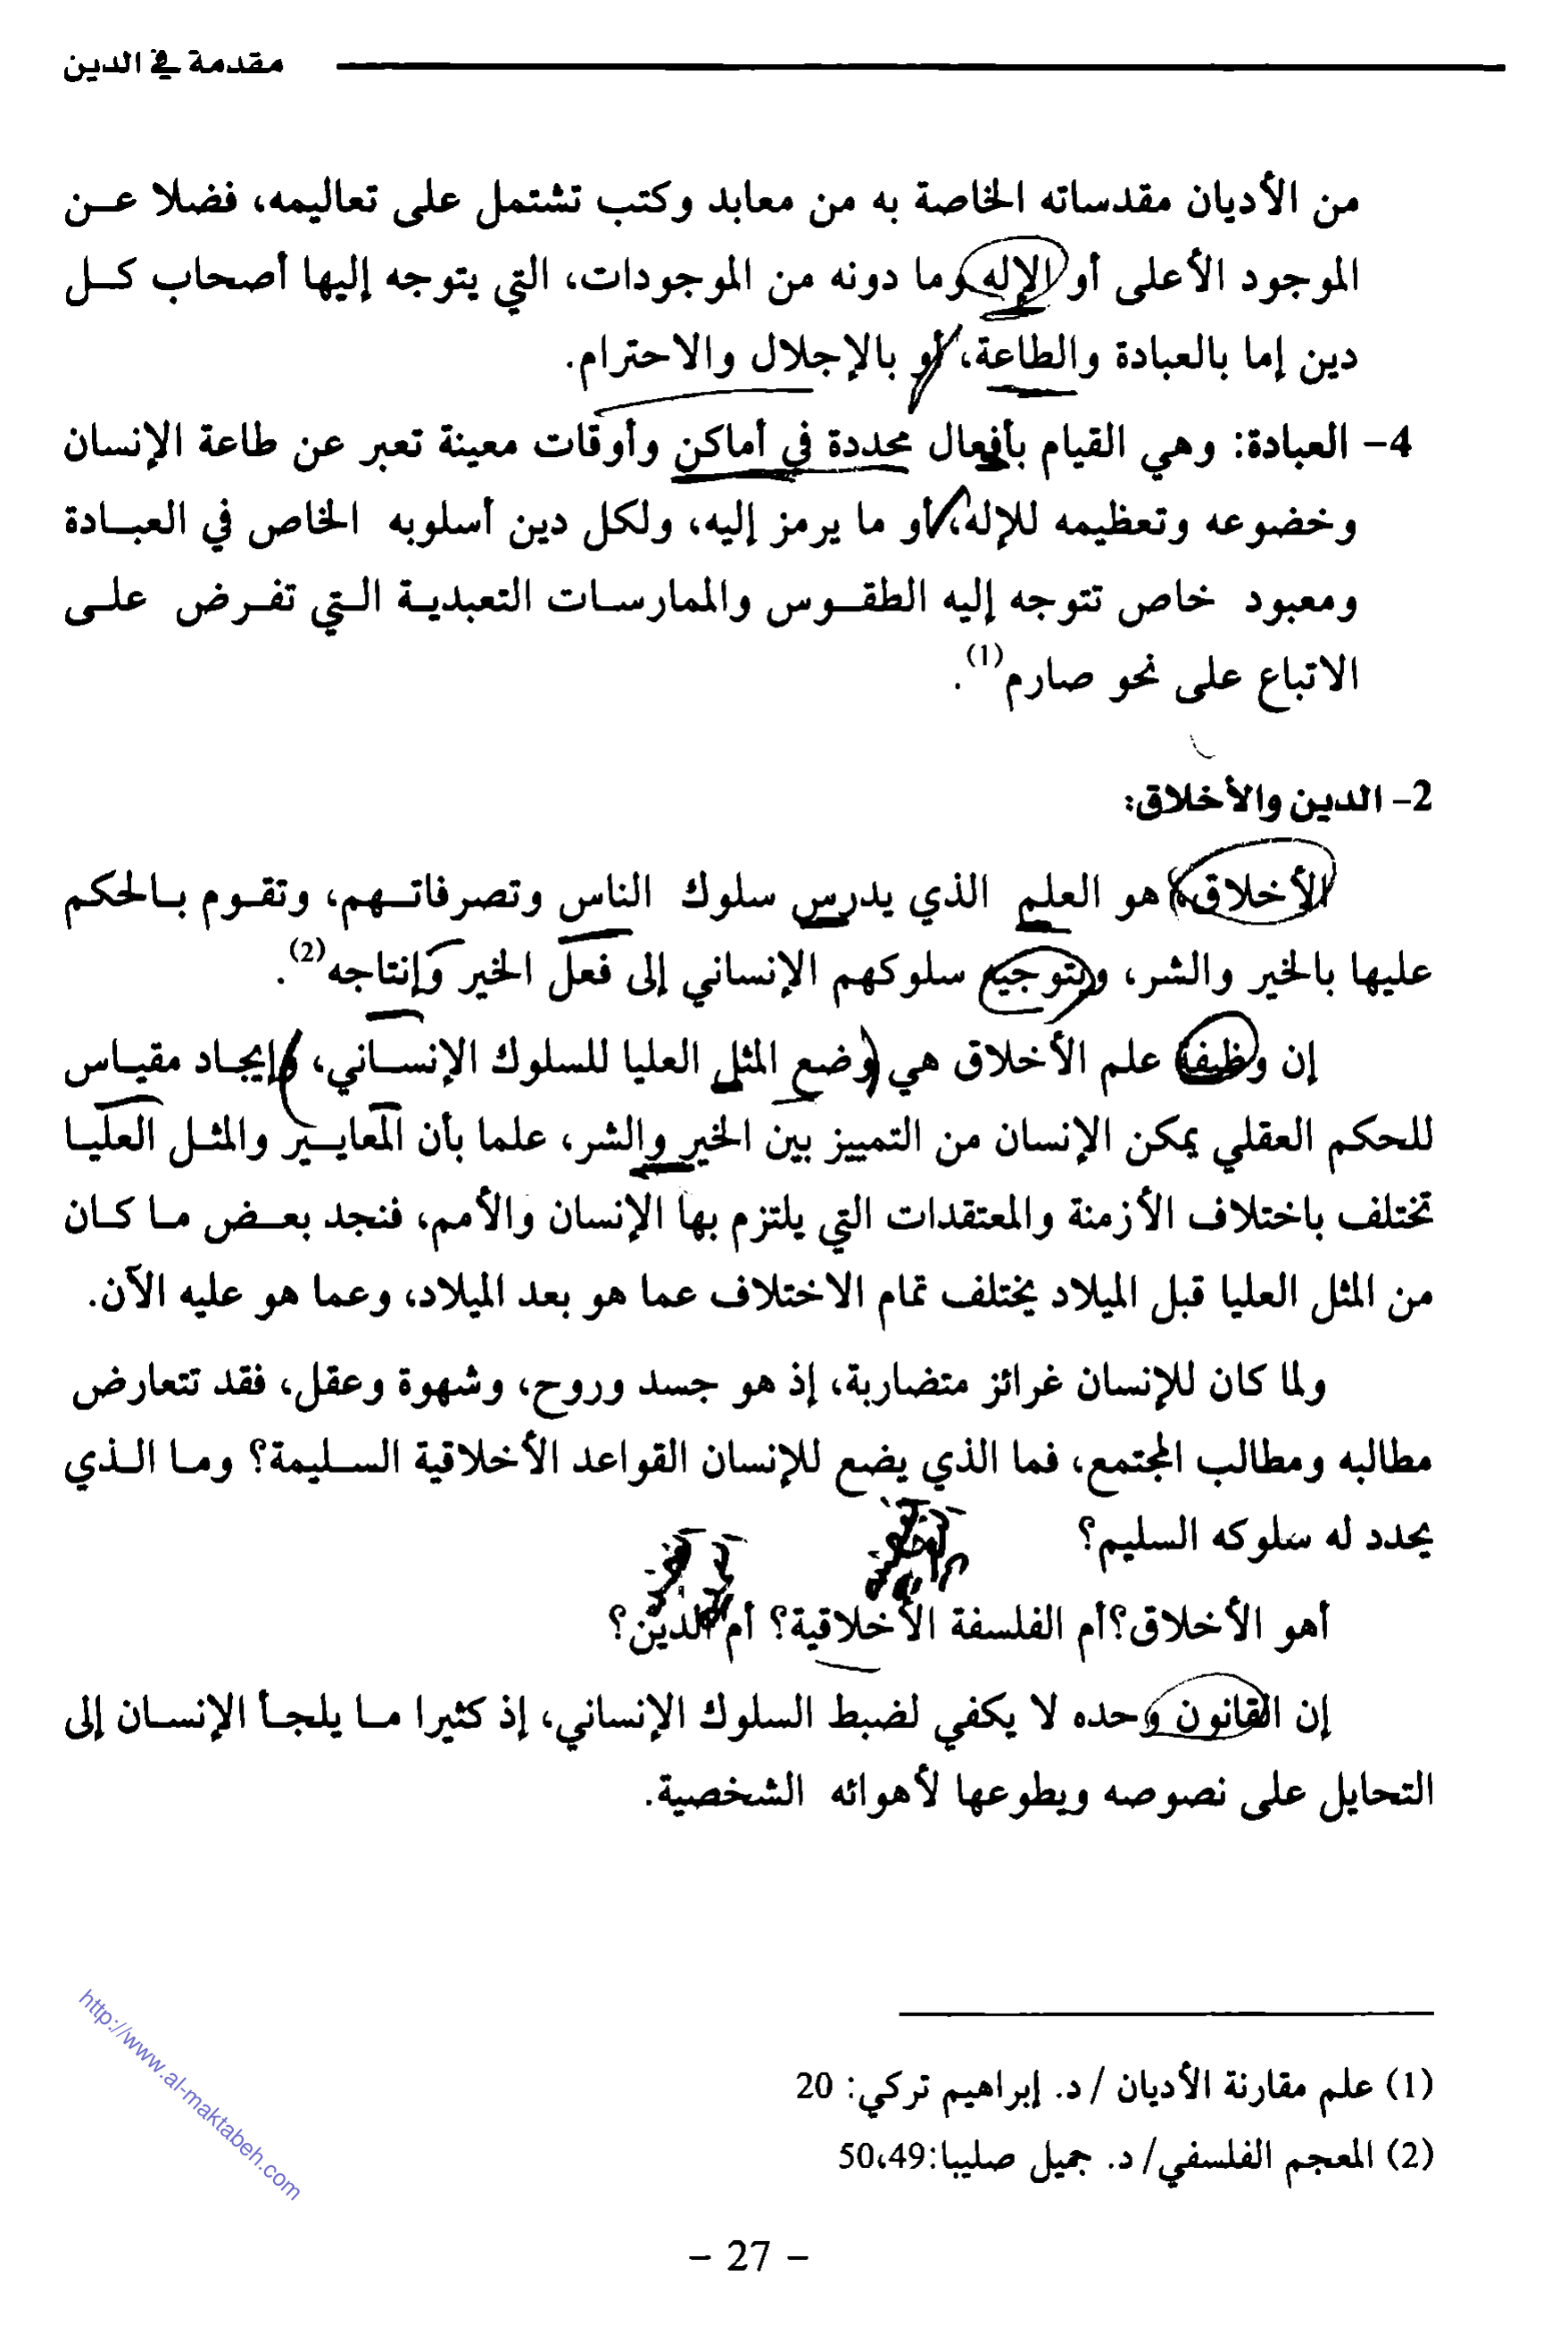 مقدمة في الدين
من الأديان مقدساته الخاصة به من معابد وكتب تشتمل على تعاليمه، فضلا عن
الموجود الأعلى أو الإله وما دونه من الموجودات، التي يتوجه إليها أصحاب كل
دين إما بالعبادة والطاعة، أو بالإجلال والاحترام.
4- العبادة: وهي القيام بأفعال محددة في أماكن وأوقات معينة تعبر عن طاعة الإنسان
وخضوعه وتعظيمه للإله، أو ما يرمز إليه، ولكل دين أسلوبه الخاص في العبادة
ومعبود خاص تتوجه إليه الطقوس والممارسات التعبدية التي تفرض على
الاتباع على نحو صارم(1).
2- الدين والأخلاق:
الأخلاق: هو العلم الذي يدرس سلوك الناس وتصرفاتهم، وتقوم بالحكم
عليها بالخير والشر، وبتوجيه سلوكهم الإنساني إلى فعل الخير وإنتاجه(2).
إن وظيفة علم الأخلاق هي وضع المثل العليا للسلوك الإنساني، وإيجاد مقياس
للحكم العقلي يمكن الإنسان من التمييز بين الخير والشر، علما بأن المعايير والمثل العليا
تختلف باختلاف الأزمنة والمعتقدات التي يلتزم بها الإنسان والأمم، فنجد بعض ما كان
من المثل العليا قبل الميلاد يختلف تمام الاختلاف عما هو بعد الميلاد، وعما هو عليه الآن.
ولما كان للإنسان غرائز متضاربة، إذ هو جسد وروح، وشهوة وعقل، فقد تتعارض
مطالبه ومطالب المجتمع، فما الذي يضع للإنسان القواعد الأخلاقية السليمة؟ وما الذي
يحدد له سلوكه السليم؟
أهو الأخلاق؟أم الفلسفة الأخلاقية؟ أم الدين؟
إن القانون وحده لا يكفي لضبط السلوك الإنساني، إذ كثيرا ما يلجأ الإنسان إلى
التحايل على نصوصه ويطوعها لأهوائه الشخصية.
(1) علم مقارنة الأديان / د. إبراهيم تركي: 20
(2) المعجم الفلسفي/ د. جميل صليبا:49،50
- 27 -
http://www.al-maktabeh.com